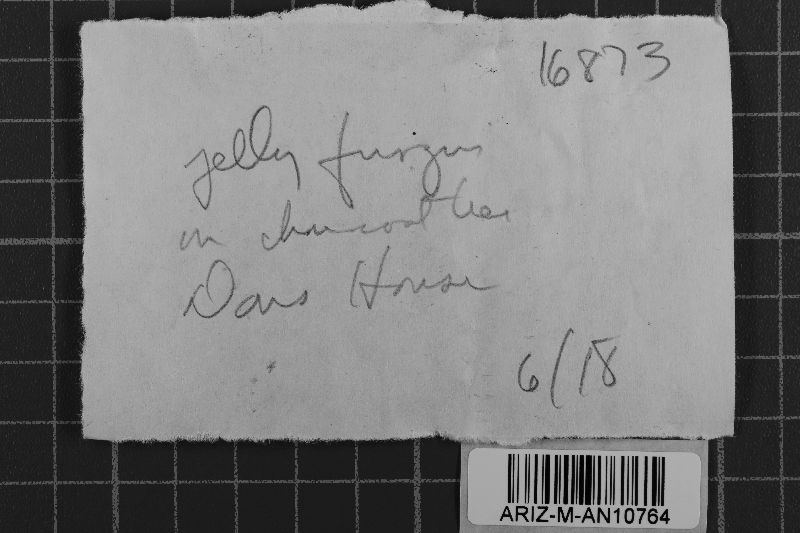 16873
jelly fungus
on charcoal tree
Dans House
6/18
ARIZ-M-AN10764